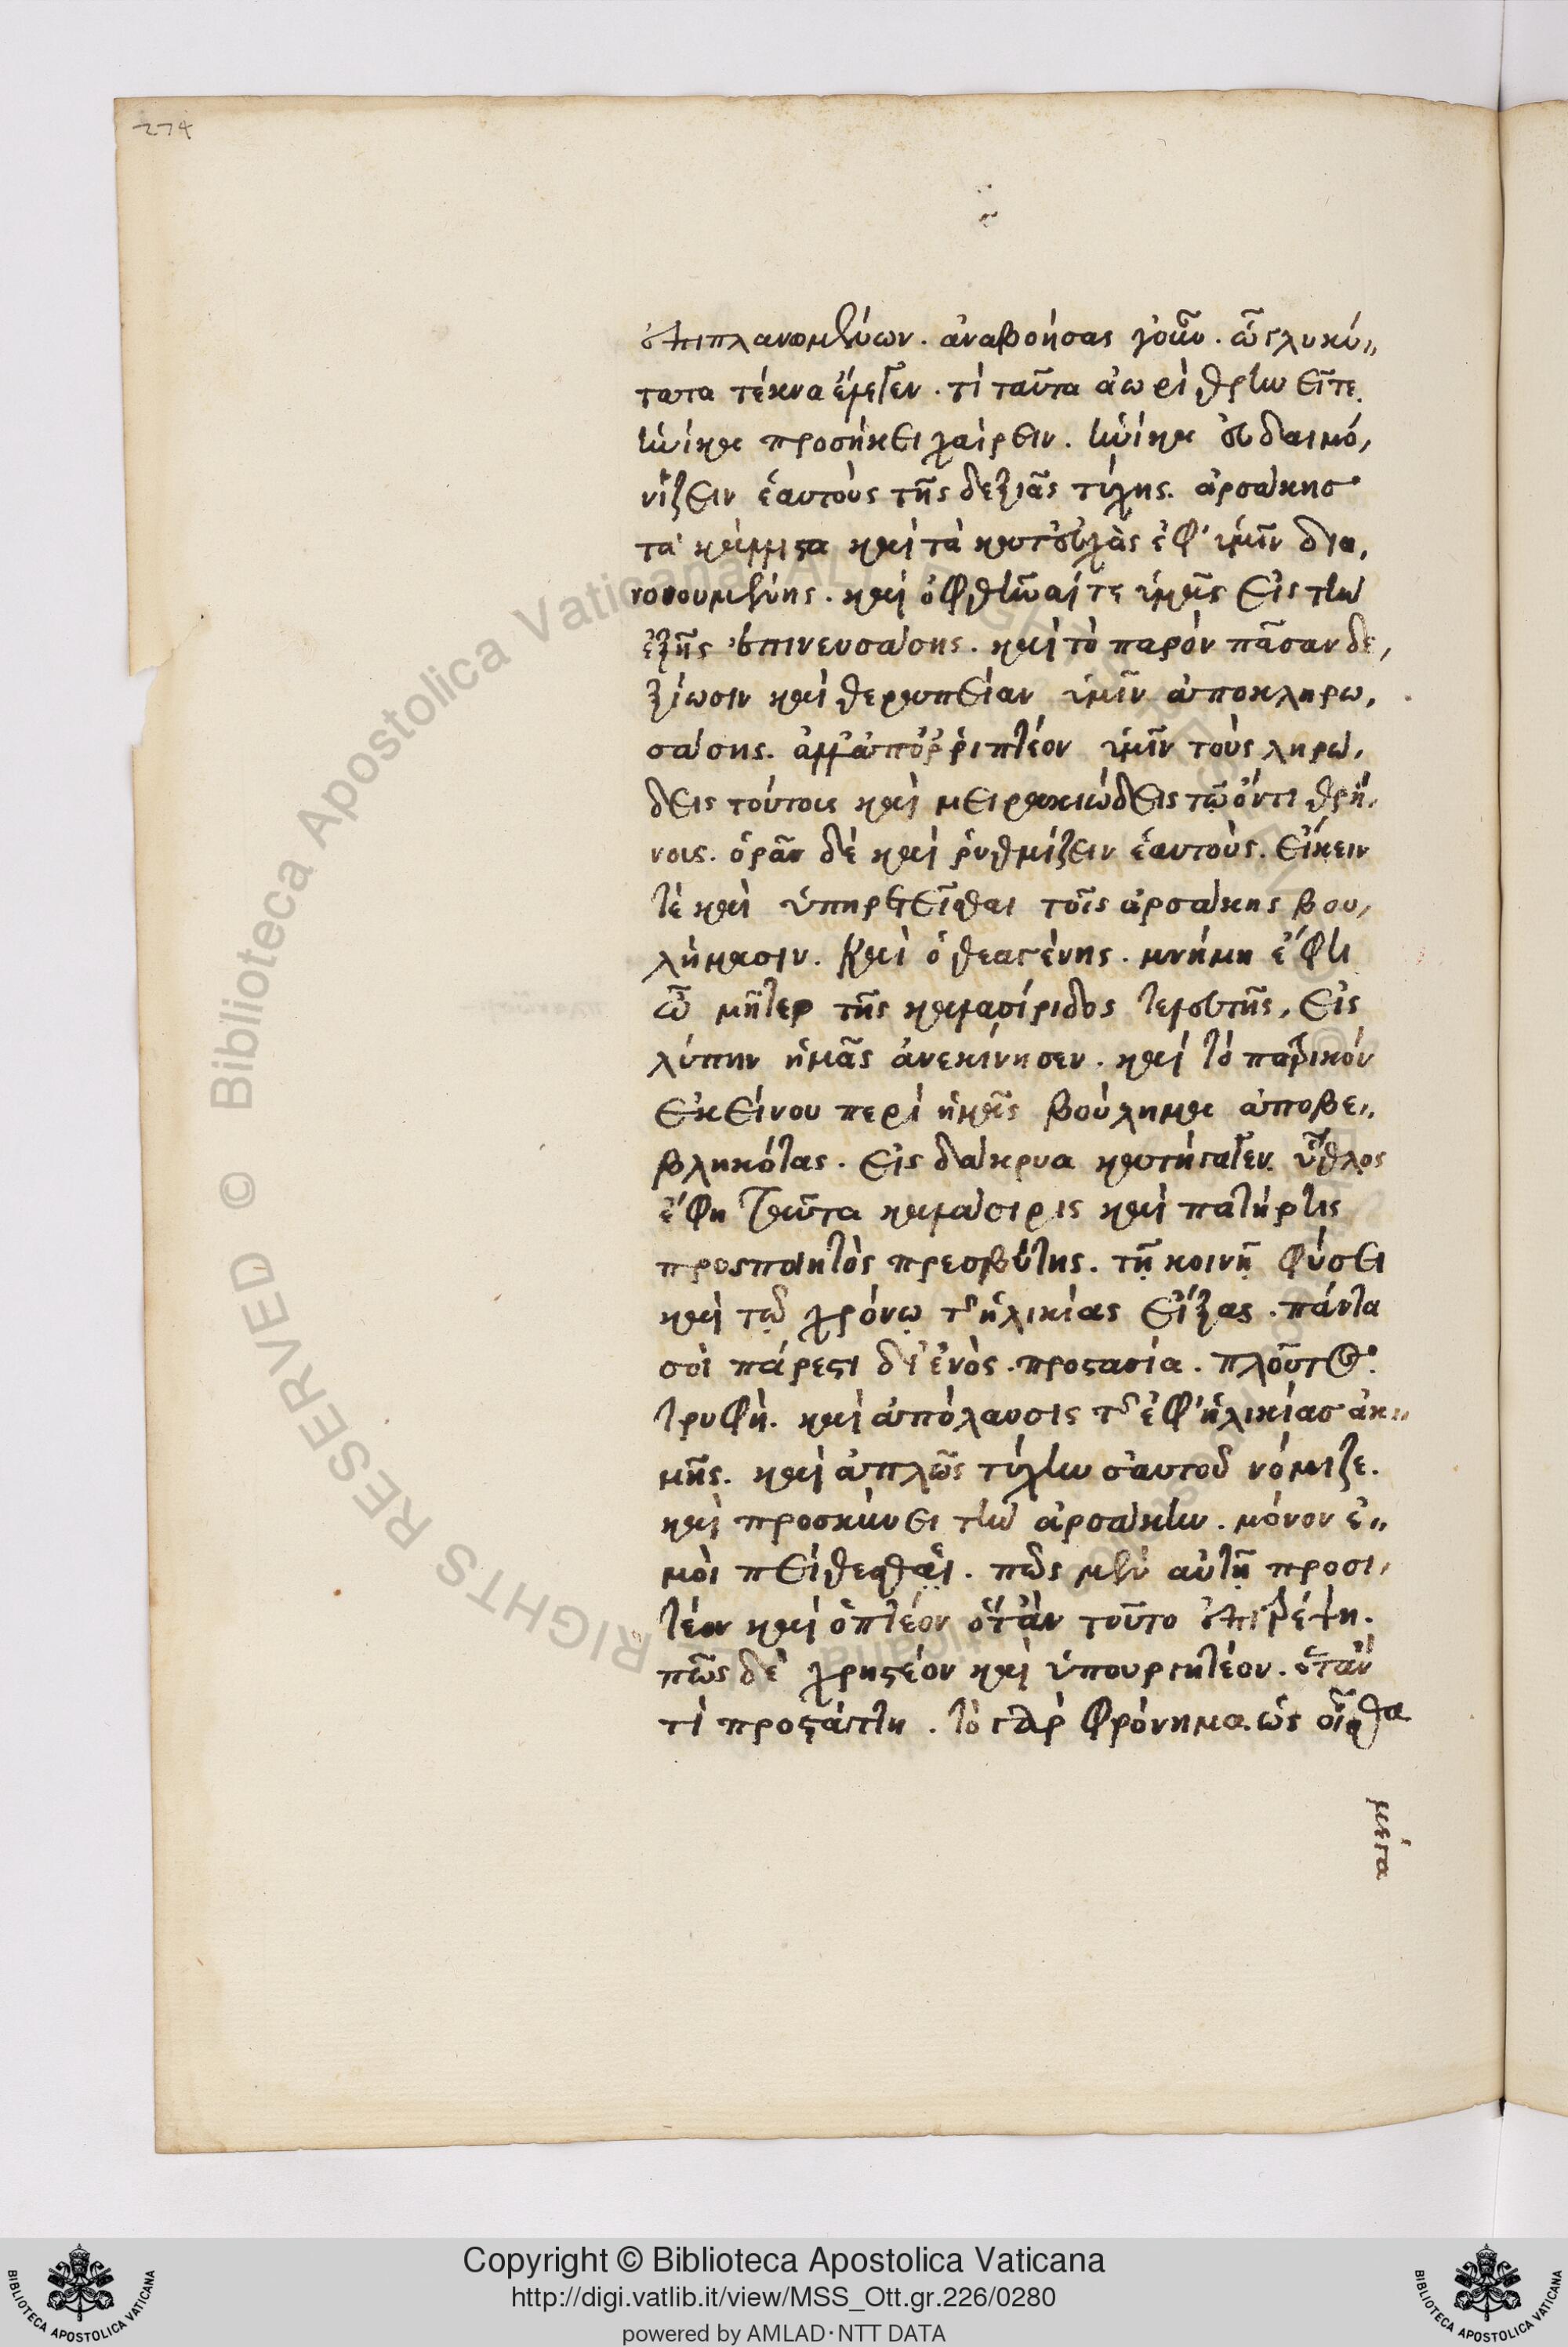 274
ἐπιπλανομένων. ἀναβοήσας γοῦν. ὦ γλυκύ,,
τατα τέκνα ἔλεγεν. τί ταῦτα ἀωρὶ θρηνεῖτε.
ἡνίκα προσήκει χαίρειν. ἡνίκα εὐδαιμο,
νίζειν ἑαυτοὺς τῆς δεξιᾶς τύχης. ἀρσάκησ
τὰ κάλλιστα καὶ τὰ κατ' εὐχὰς ἐφ' ὑμῖν δια,
νοουμένης. καὶ ὀφθῆναί τε ὑμᾶς εἰς τὴν
ἑξῆς ἐπινευσάσης. καὶ τὸ παρὸν πᾶσαν δε,
ξίωσιν καὶ θεραπείαν ὑμῖν ἀποκληρω,
σάσης. ἀλλ' ἀπορριπτέον ὑμῖν τοὺς ληρώ,
δεις τούτους καὶ μειρακιώδεις τῷ ὄντι θρή,
νους. ὁρᾶν δὲ καὶ ῥυθμίζειν ἑαυτούς. εἴκειν
τὲ καὶ ὑπηρετεῖσθαι τοῖς ἀρσάκης βου,
λήμασιν. Καὶ ὁ θεαγένης. μνήμη ἔφη
ὦ μῆτερ τῆς καλασίριδος τελευτῆς, εἰς
λύπην ἡμᾶς ἀνεκίνησεν. καὶ τὸ πατρικὸν
ἐκείνου περὶ ἡμᾶς βούλημα ἀποβε,,
βληκότας. εἰς δάκρυα κατήγαγεν. ὕθλος
ἔφη ταῦτα καλάσιρις καὶ πατήρ τις
προσποιητὸς πρεσβύτης. τῇ κοινῇ φύσει
καὶ τῷ χρόνῳ τῆς ἡλικίας εἴξας. πάντα
σοὶ πάρεστι δι' ἑνὸς. προστασία. πλοῦτος.
τρυφή. καὶ ἀπόλαυσις τῆς ἐφ' ἡλικίασ ἀκ,,
μῆς. καὶ ἁπλῶς τύχην σαυτοῦ νόμιζε.
καὶ προσκύνει τὴν ἀρσάκην. μόνον ἐ,,
μοὶ πείθεσθαι. πῶς μὲν αὐτῇ προσι,
τέον καὶ ὀπτέον ὅταν τοῦτο ἐπιτρέπῃ.
πῶς δὲ χρηστέον καὶ ὑπουργητέον. ὅταν
τὶ προστάττῃ. τὸ γὰρ φρόνημα. ὡς οἶσθα
μέγα
Copyright © Biblioteca Apostolica Vaticana
http://digi.vatlib.it/view/MSS_Ott.gr.226/0280
powered by AMLAD·NTT DATA